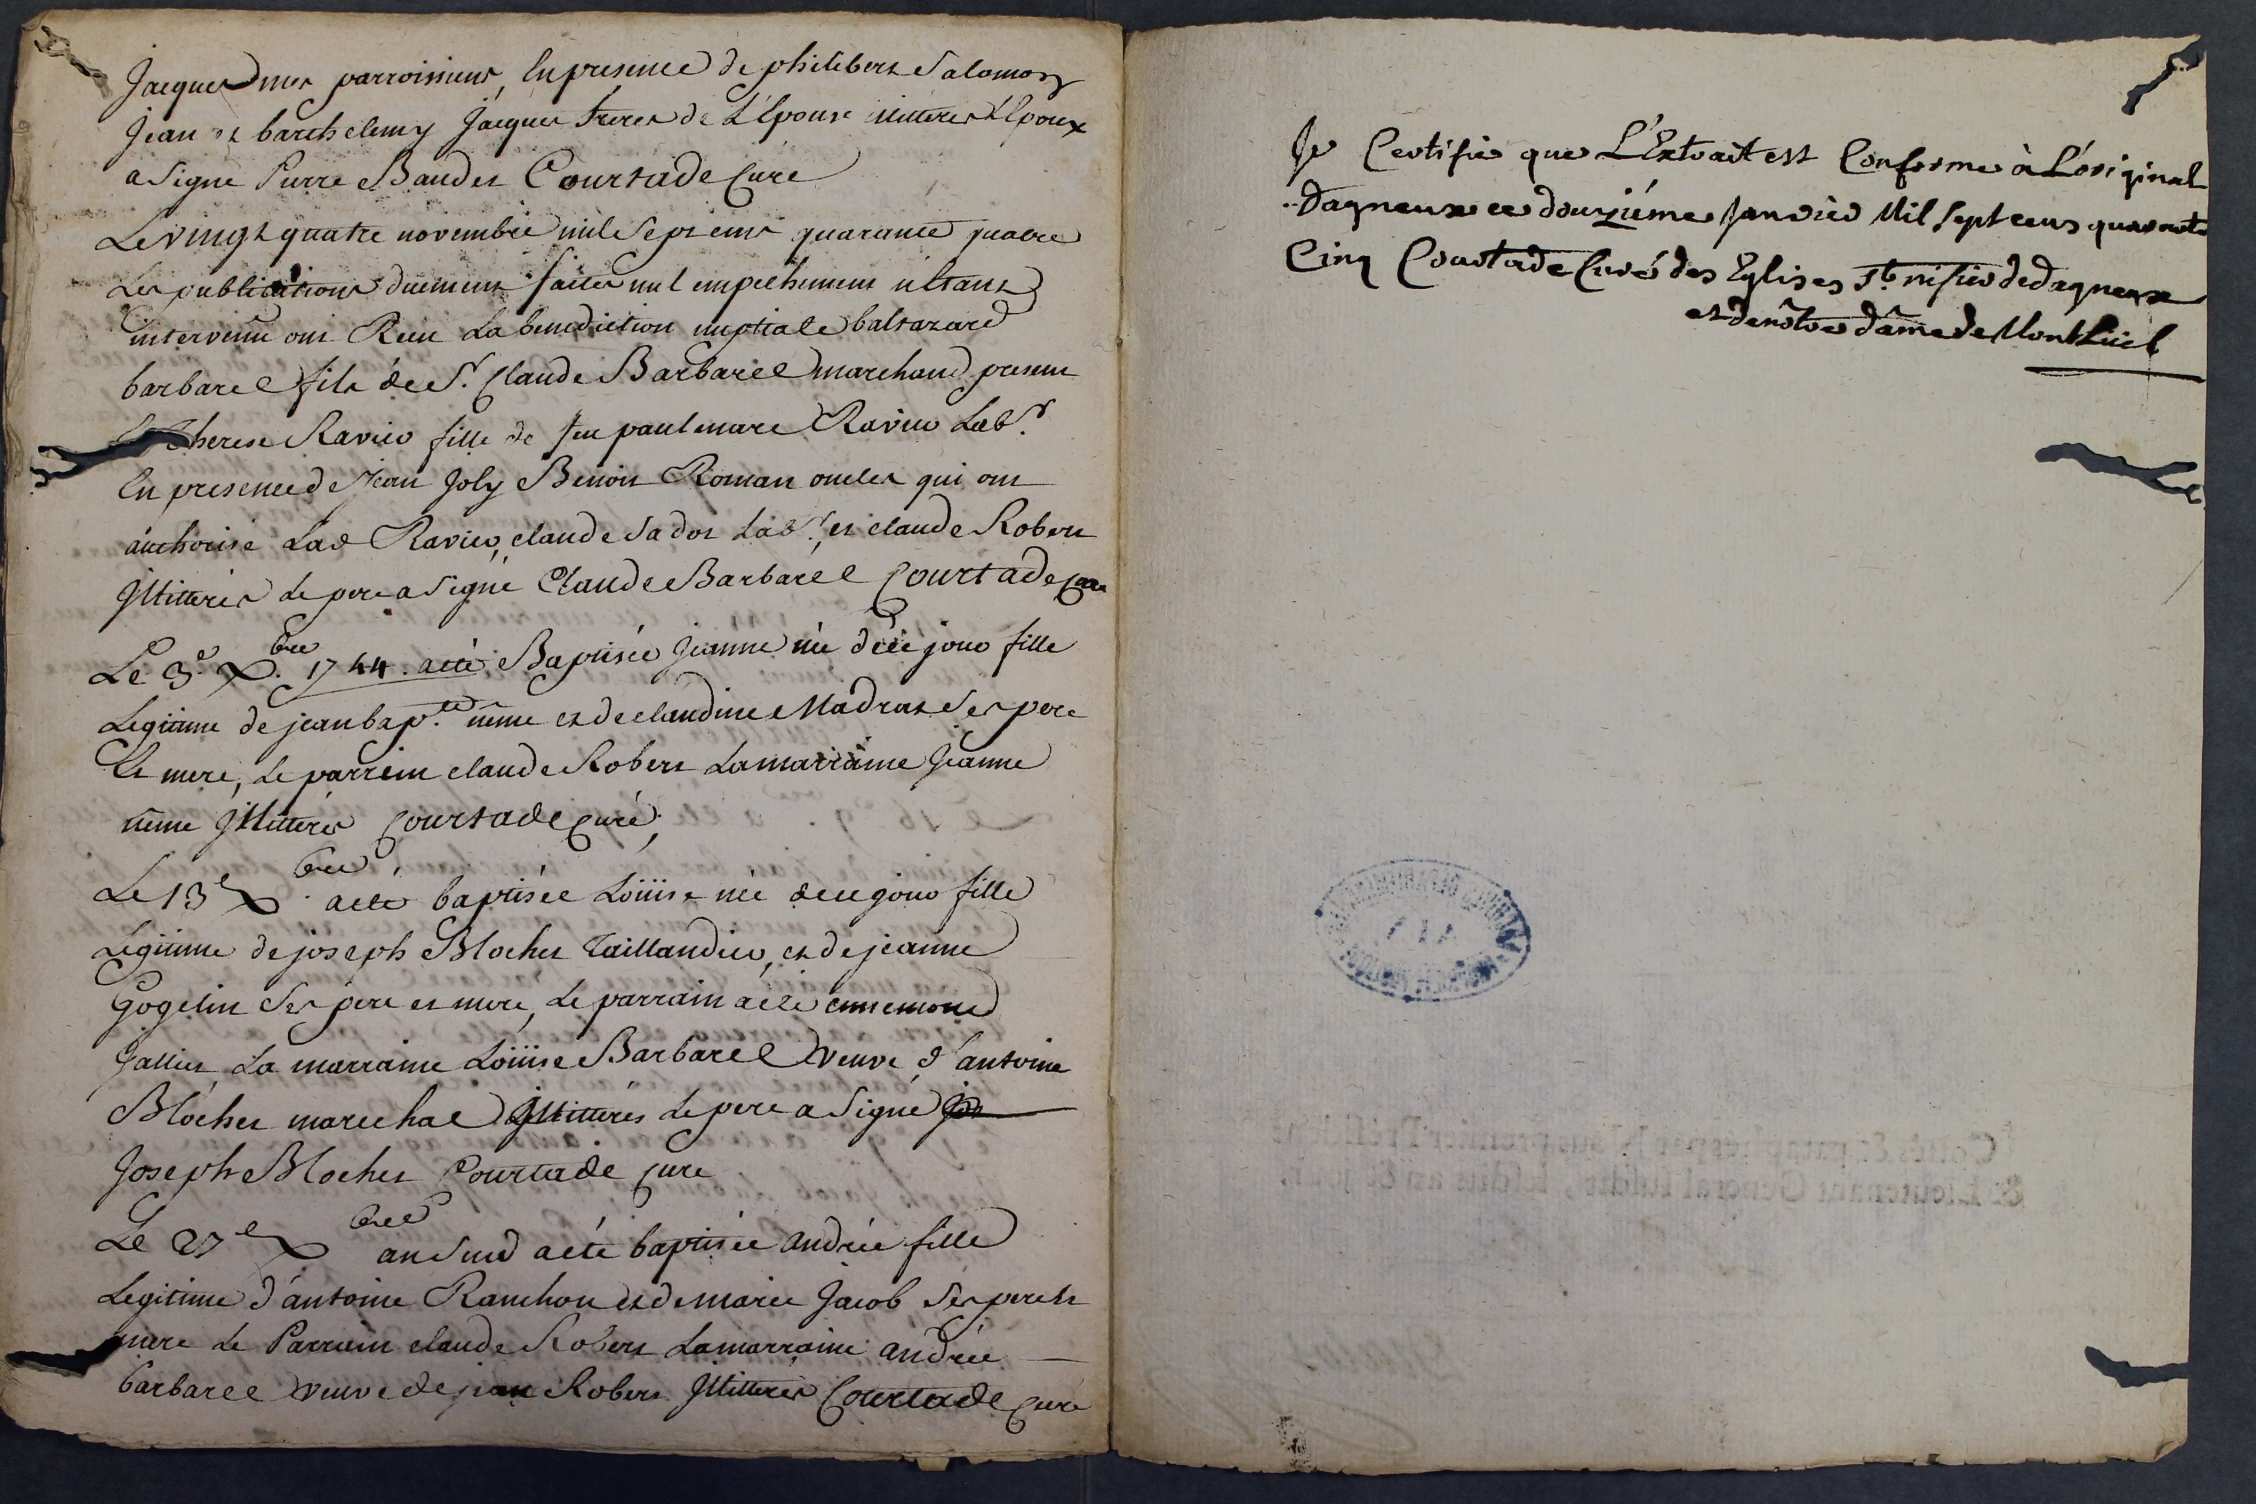 Jacques mes parroissiens, En presence de philibert Salomon
Jean et barthelemy Jacques freres de L'Epouse illiteres L'Epoux
a Signé Pierre Baudet Courtade Curé
Le vingt quatre novembre mil Sept cent quarante quatre
Les publications düement faites nul empechement n'étant
intervenu ont Reçu La benediction nuptiale baltazard
barbarel fils de Sr. Claude Barbarel marchand present
Therese Ravier fille de feu paul marc Ravier Labr.
En presence de Jean Joly Benoit Roman oncles qui ont
authorisé Lad Ravier, claude Sadot Labr., et claude Robert
Illiterés Le pere a Signé Claude Barbarel Courtade Curé
Le 3e Xbre. 1744. a eté Baptisée Jeanne née dece jour fille
Legitime de jean bapte. même et de claudine Madras Ses pere
Et mere, Le parrein claude Robert La marraine Jeanne
même Illiterés Courtade Curé,
Le 13e Xbre. a eté baptisée Loüise née dece jour fille
Legitime de joseph Blochet Taillandier, et de jeanne
Gogelin Ses pere et mere, Le parrain a eté ennemond
Jallier La marraine Loüise Barbarel veuve d'antoine
Blochet marechal Illiterés Le pere a Signé
Joseph Blochet Courtade Curé
Le 27e Xbre an Susd a eté baptisée andrée fille
Legitime d'antoine Ranchon et de marie Jacob Ses pere et
mere Le Parrain claude Robert La marraine andrée
barbarel veuve de jean Robert Illiterés Courtade Curé
Je Certifie que L'Extrait est Conforme à L'original
Dagneux ce douzième Janvier Mil Sept cens quarante
Cinq Courtade Curé des Eglises St. nisier de dagneux
et de nôtre dâme de Montluel